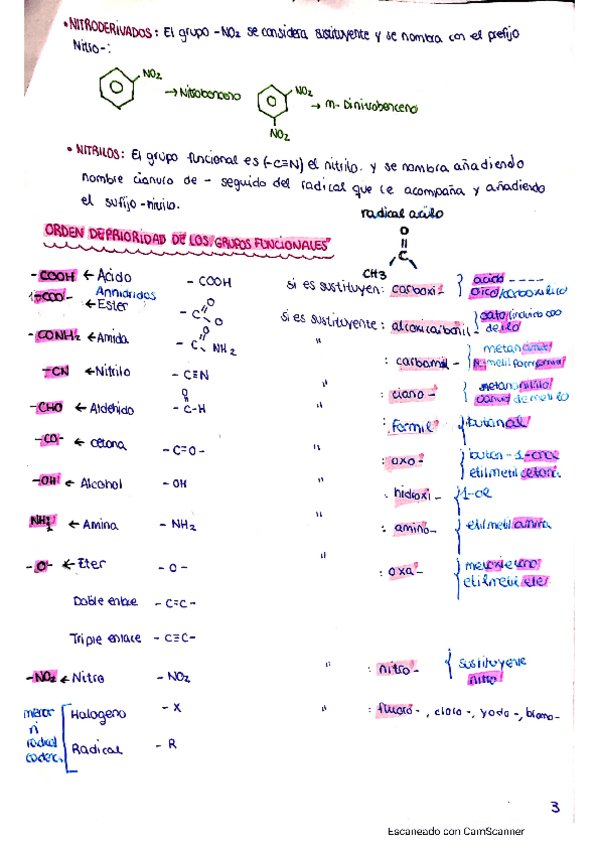 • NITRODERIVADOS: El grupo -NO2 se considera sustituyente y se nombra con el prefijo
Nitro-:
NO2
→ Nitrobenceno
NO2
NO2
→ m-Dinitrobenceno
• NITRILOS: El grupo funcional es (-C≡N) el nitrilo. y se nombra añadiendo
nombre cianuro de - seguido del radical que le acompaña y añadiendo
el sufijo -nitrilo.
ORDEN DE PRIORIDAD DE LOS "GRUPOS FUNCIONALES"
radical acilo
O
C
CH3
-COOH ← Ácido - COOH si es sustituyen: carboxi- { acido ----
oico/carboxilico
-COO- Anhidridos
← Ester - C O O si es sustituyente: alcoxicarbonil-
de ilo
-CONH2 ← Amida - C O NH2 " : carbamil- { metanamida
-CN ← Nitrilo - C≡N " : ciano- { metanonitrilo
-CHO ← Aldehido - C-H O " : formil- { butanal
-CO- ← cetona - C=O- " : oxo- { butan-1-ona
etilmetil
-OH ← Alcohol - OH " : hidroxi- { 1-ol
NH2 ← Amina - NH2 : amino- { etilmetil amina
-O- ← Eter - O - " : oxa- {
etilmetil eter
Doble enlace - C=C-
Triple enlace - C≡C-
-NO2 ← Nitro - NO2 " : nitro- { sustituyente
nitro
menor
n
radical
caden.
Halogeno - X " : fluoro-, cloro-, yodo-, bromo-
Radical - R
3
Escaneado con CamScanner